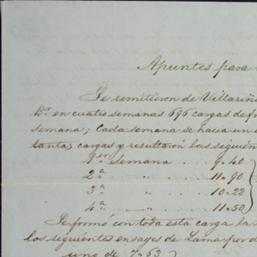 Apuntes para
Se remitieron de Villariñ
en cuatro semanas 696 cargas de f
semana; Cada semana se hacia un
tantas cargas y resultaron los siguien
1ª semana . . . . 9.40
2ª " . . . . 11.90
3ª " . . . . 10.22
4ª " . . . . 11.50
Se formó con toda esta carga la
los siguientes ensayes de Lamas por d
uno de 7-53